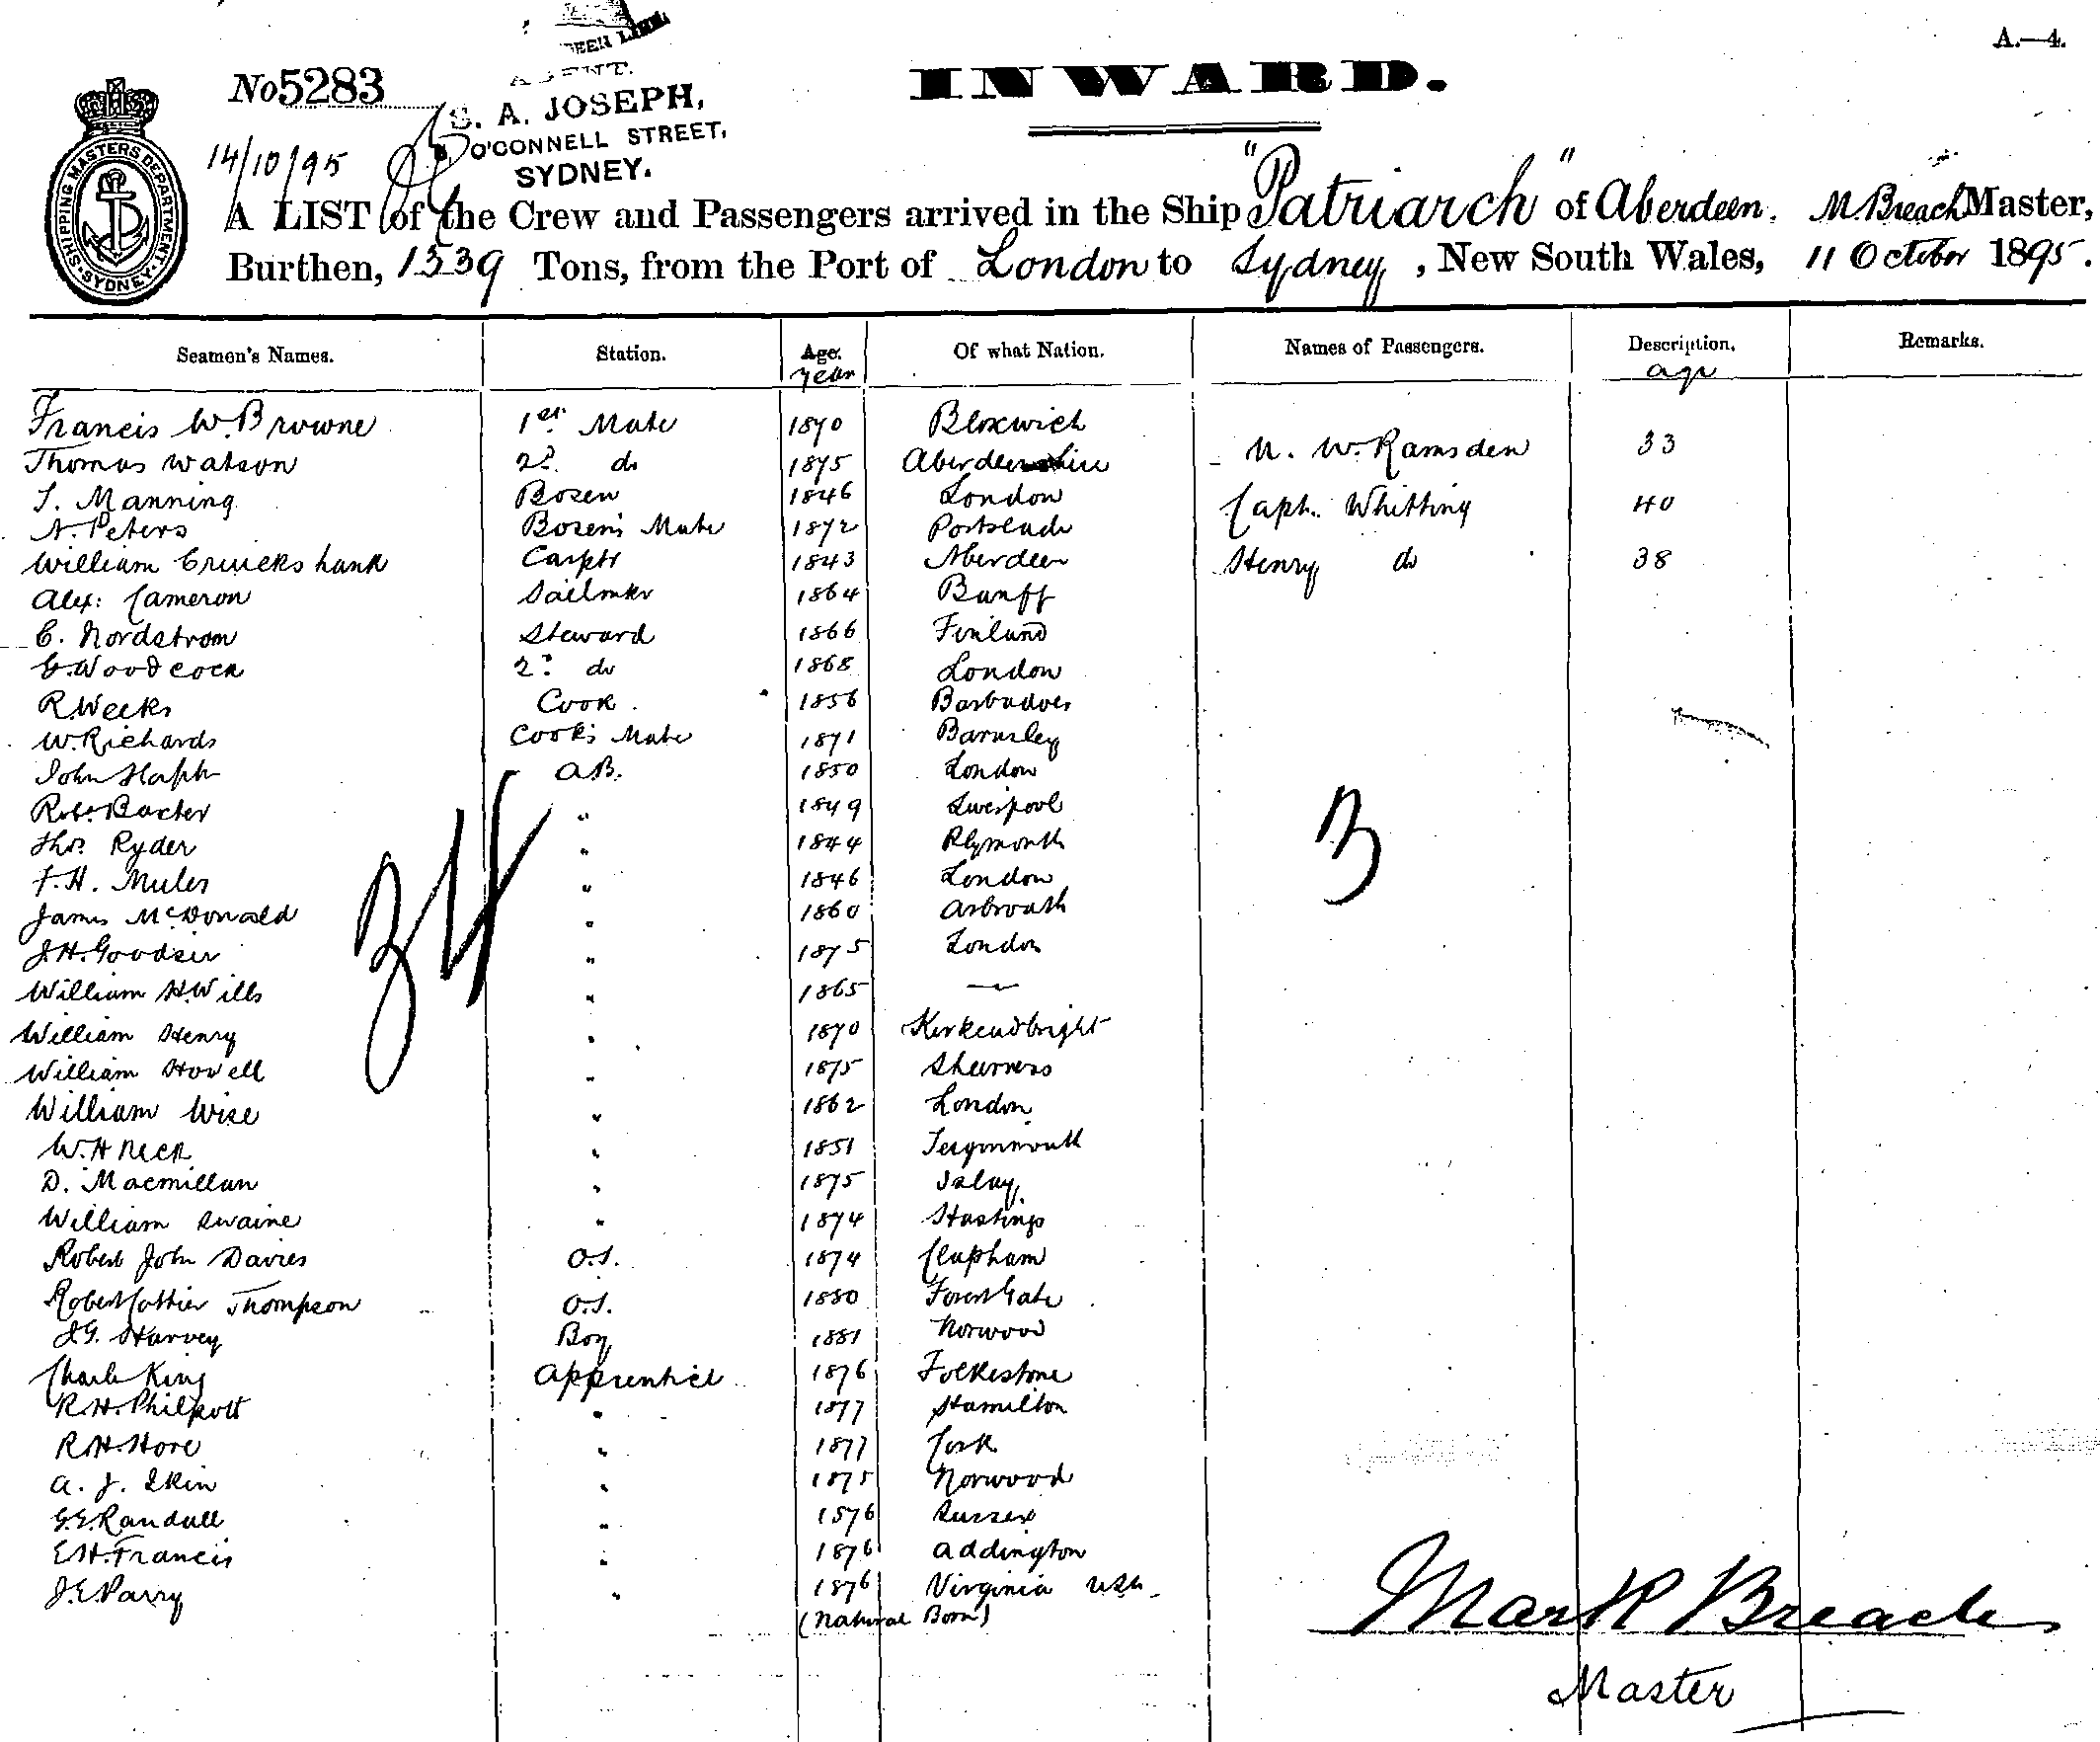 A.—4.
No 5283
AGENT.
S. A. JOSEPH,
O'CONNELL STREET,
SYDNEY.
INWARD.
14/10/95
SHIPPING MASTERS DEPARTMENT SYDNEY
A LIST of the Crew and Passengers arrived in the Ship "Patriarch" of Aberdeen, M. Breach Master,
Burthen, 1339 Tons, from the Port of London to Sydney, New South Wales, 11 October 1895.
Seamen's Names. Station. Age. Of what Nation. Names of Passengers. Description. Remarks.
year age
Francis W. Browne 1st Mate 1870 Bloxwich
N. W. Ramsden 33
Thomas Watson 2d do 1875 Aberdeenshire
J. Manning Bosen 1846 London
Capt. Whitting 40
A. Peters Bosen's Mate 1872 Portslade
William Cruickshank Carptr 1843 Aberdeen
Henry do 38
Alex: Cameron Sailmkr 1864 Banff
C. Nordstrom Steward 1866 Finland
G. Woodcock 2d do 1868 London
R. Weeks Cook 1856 Barbadoes
W. Richards Cook's Mate 1871 Barnsley
John A.B. 1850 London
Robt Baxter " 1849 Liverpool
Thos Ryder " 1844 Plymouth
F. H. Mules " 1846 London
James McDonald " 1860 Arbroath
J. H. Goodsir " 1875 London
William H. Wills " 1865 —
William Henry " 1870 Kirkcudbright
William Hovell " 1875 Sheerness
William Wise " 1862 London
W. H Neck " 1851 Teignmouth
D. Macmillan " 1875 Islay
William Swaine " 1874 Hastings
Robert John Davies O.S. 1874 Clapham
Robert Cottier Thompson O.S. 1880 Forest Gate
J. G. Harvey Boy 1881 Norwood
Charles King Apprentice 1876 Folkestone
R. H. Philpott " 1877 Hamilton
R. H. Hore " 1877 Cork
A. J. Ekin " 1875 Norwood
G. E. Randall " 1876 Sussex
E. H. Francis " 1876 Addington
J. E. Parry " 1876 Virginia USA
(Natural Born)
34
3
Mark Breach
Master